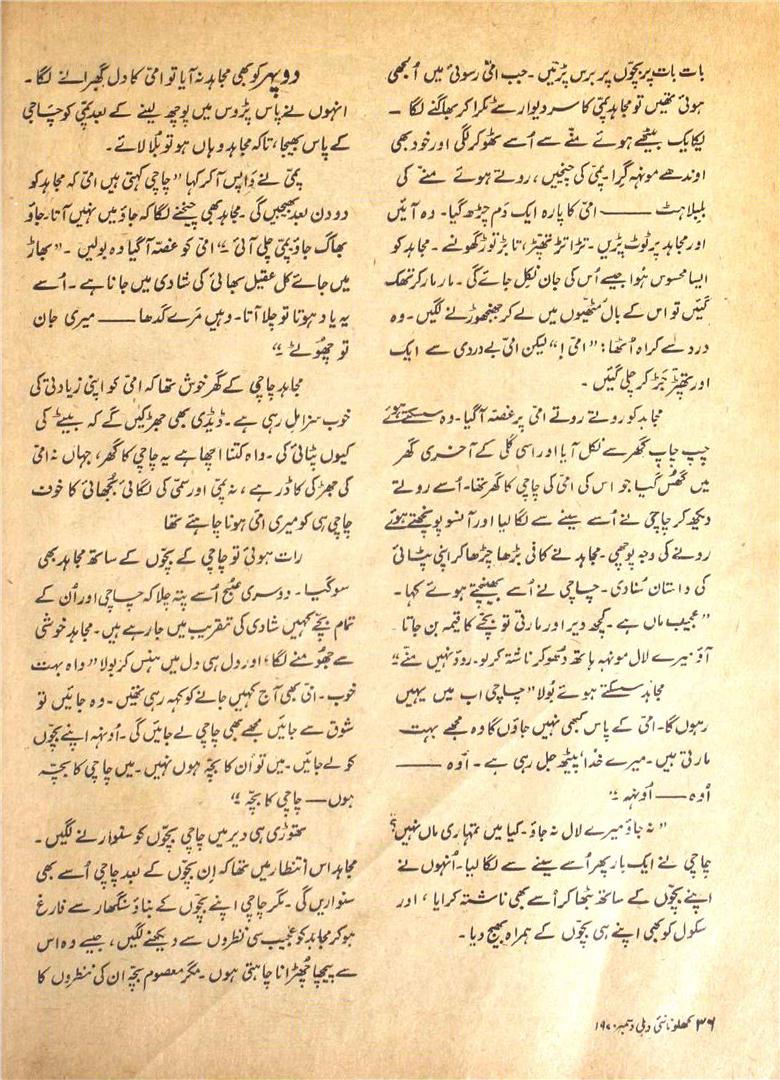 بات بات پر بچوں پر برس پڑتیں۔ جب امّی رسوئی میں اُلجھی
ہوئی تھیں تو مجاہد پمّی کا سر دیوار سے ٹکرا کر بھاگنے لگا۔
یکایک بیٹھے ہوئے منّے سے اُسے ٹھوکر لگی اور خود بھی
اوندھے مونہہ گرا۔ پمّی کی چیخیں، روتے ہوئے منّے کی
بلبلاہٹ —— امّی کا پارہ ایک دم چڑھ گیا۔ وہ آئیں
اور مجاہد پر ٹوٹ پڑیں۔ تڑاتڑ تھپّڑ، تابڑ توڑ گھونسے۔ مجاہد کو
ایسا محسوس ہُوا جیسے اُس کی جان نکل جائے گی۔ مار مار کر تھک
گئیں تو اس کے بال مٹھیوں میں لے کر جھنجھوڑنے لگیں۔ وہ
درد سے کراہ اُٹھا: "امّی!" لیکن امّی بے دردی سے ایک
اور تھپّڑ جڑ کر چلی گئیں۔
مجاہد کو روتے روتے امّی پر غصّہ آگیا۔ وہ سسکتے ہوئے
چپ چاپ گھر سے نکل آیا اور اسی گلی کے آخری گھر
میں گھس گیا جو اس کی امّی کی چاچی کا گھر تھا۔ اُسے روتے
دیکھ کر چاچی نے اُسے سینے سے لگا لیا اور آنسو پونچھتے ہوئے
رونے کی وجہ پوچھی۔ مجاہد نے کافی بڑھا چڑھا کر اپنی پٹائی
کی داستان سُنا دی۔ چاچی نے اُسے بھینچتے ہوئے کہا۔
"عجیب ماں ہے۔ کچھ دیر اور مارتی تو بچّے کا قیمہ بن جاتا
آؤ میرے لال مونہہ ہاتھ دھو کر ناشتہ کرلو۔ روؤ نہیں منّے"
مجاہد سسکتے ہوئے بولا "چاچی اب میں یہیں
رہوں گا۔ امّی کے پاس کبھی نہیں جاؤں گا وہ مجھے بہت
مارتی ہیں۔ میرے خدا پیٹھ جل رہی ہے۔ اُوہ ——
اُوہ —— اُونہہ"
"نہ جاؤ میرے لال نہ جاؤ۔ کیا میں تمہاری ماں نہیں؟"
چاچی نے ایک بار پھر اُسے سینے سے لگا لیا۔ اُنہوں نے
اپنے بچّوں کے ساتھ بٹھا کر اُسے بھی ناشتہ کرایا، اور
سکول کو بھی اپنے ہی بچّوں کے ہمراہ بھیج دیا۔
دوپہر کو بھی مجاہد نہ آیا تو امّی کا دل گھبرانے لگا۔
انہوں نے پاس پڑوس میں پوچھ لینے کے بعد پمّی کو چاچی
کے پاس بھیجا، تاکہ مجاہد وہاں ہو تو بُلا لائے۔
پمّی نے واپس آکر کہا "چاچی کہتی ہیں امّی کہ مجاہد کو
دو دن بعد بھیجیں گی۔ مجاہد بھی چیخنے لگا کہ جاؤ میں نہیں آتا۔ جاؤ
بھاگ جاؤ پمّی چلی آئی" امّی کو غصّہ آگیا وہ بولیں۔ "بھاڑ
میں جائے کل عقیل بھائی کی شادی میں جانا ہے۔ اُسے
یہ یاد ہوتا تو چلا آتا۔ وہیں مَرے گدھا —— میری جان
تو چھُوٹے"
مجاہد چاچی کے گھر خوش تھا کہ امّی کو اپنی زیادتی کی
خوب سزا مل رہی ہے۔ ڈیڈی بھی جھڑکیں گے کہ بیٹے کی
کیوں پٹائی کی۔ واہ کتنا اچھا ہے یہ چاچی کا گھر، جہاں نہ امّی
کی جھڑکی کا ڈر ہے، نہ پمّی اور سمّی کی لگائی بُجھائی کا خوف
چاچی ہی کو میری امّی ہونا چاہئے تھا
رات ہوئی تو چاچی کے بچّوں کے ساتھ مجاہد بھی
سو گیا۔ دوسری صبح اُسے پتہ چلا کہ چاچی اور اُن کے
تمام بچّے کہیں شادی کی تقریب میں جا رہے ہیں۔ مجاہد خوشی
سے جھومنے لگا، اور دل ہی دل میں ہنس کر بولا "واہ بہت
خوب۔ امّی بھی آج کہیں جانے کو کہہ رہی تھیں۔ وہ جائیں تو
شوق سے جائیں مجھے بھی چاچی لے جائیں گی۔ اُونہہ اپنے بچّوں
کو لے جائیں۔ میں تو اُن کا بچّہ ہوں نہیں۔ میں چاچی کا بچّہ
ہوں —— چاچی کا بچّہ"
تھوڑی ہی دیر میں چاچی بچّوں کو سنوارنے لگیں۔
مجاہد اس انتظار میں تھا کہ اِن بچّوں کے بعد چاچی اُسے بھی
سنواریں گی۔ مگر چاچی اپنے بچّوں کے بناؤ سنگھار سے فارغ
ہو کر مجاہد کو عجیب سی نظروں سے دیکھنے لگیں، جیسے وہ اس
سے پیچھا چھُڑانا چاہتی ہوں۔ مگر معصوم بچّہ ان کی نظروں کا
۳۶ کھلونا نئی دہلی دسمبر ۱۹۷۰